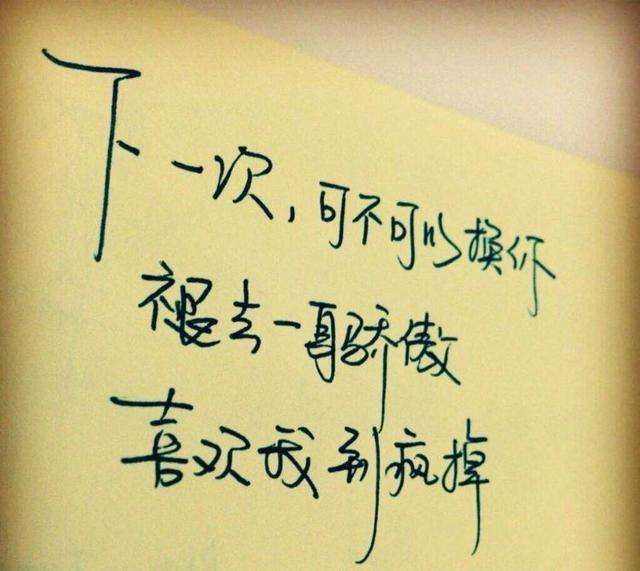 下一次,可不可以换你
褪去一身骄傲
喜欢我到疯掉